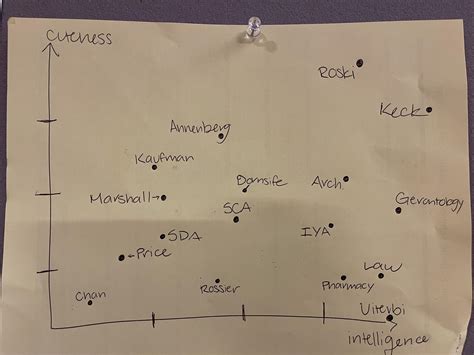 cuteness
Roski
Keck
Annenberg
Kaufman
Dornsife
Arch.
Marshall→
SCA
Gerontology
SDA
IYA
Price
Chan
Rossier
Pharmacy
Law
Viterbi
intelligence